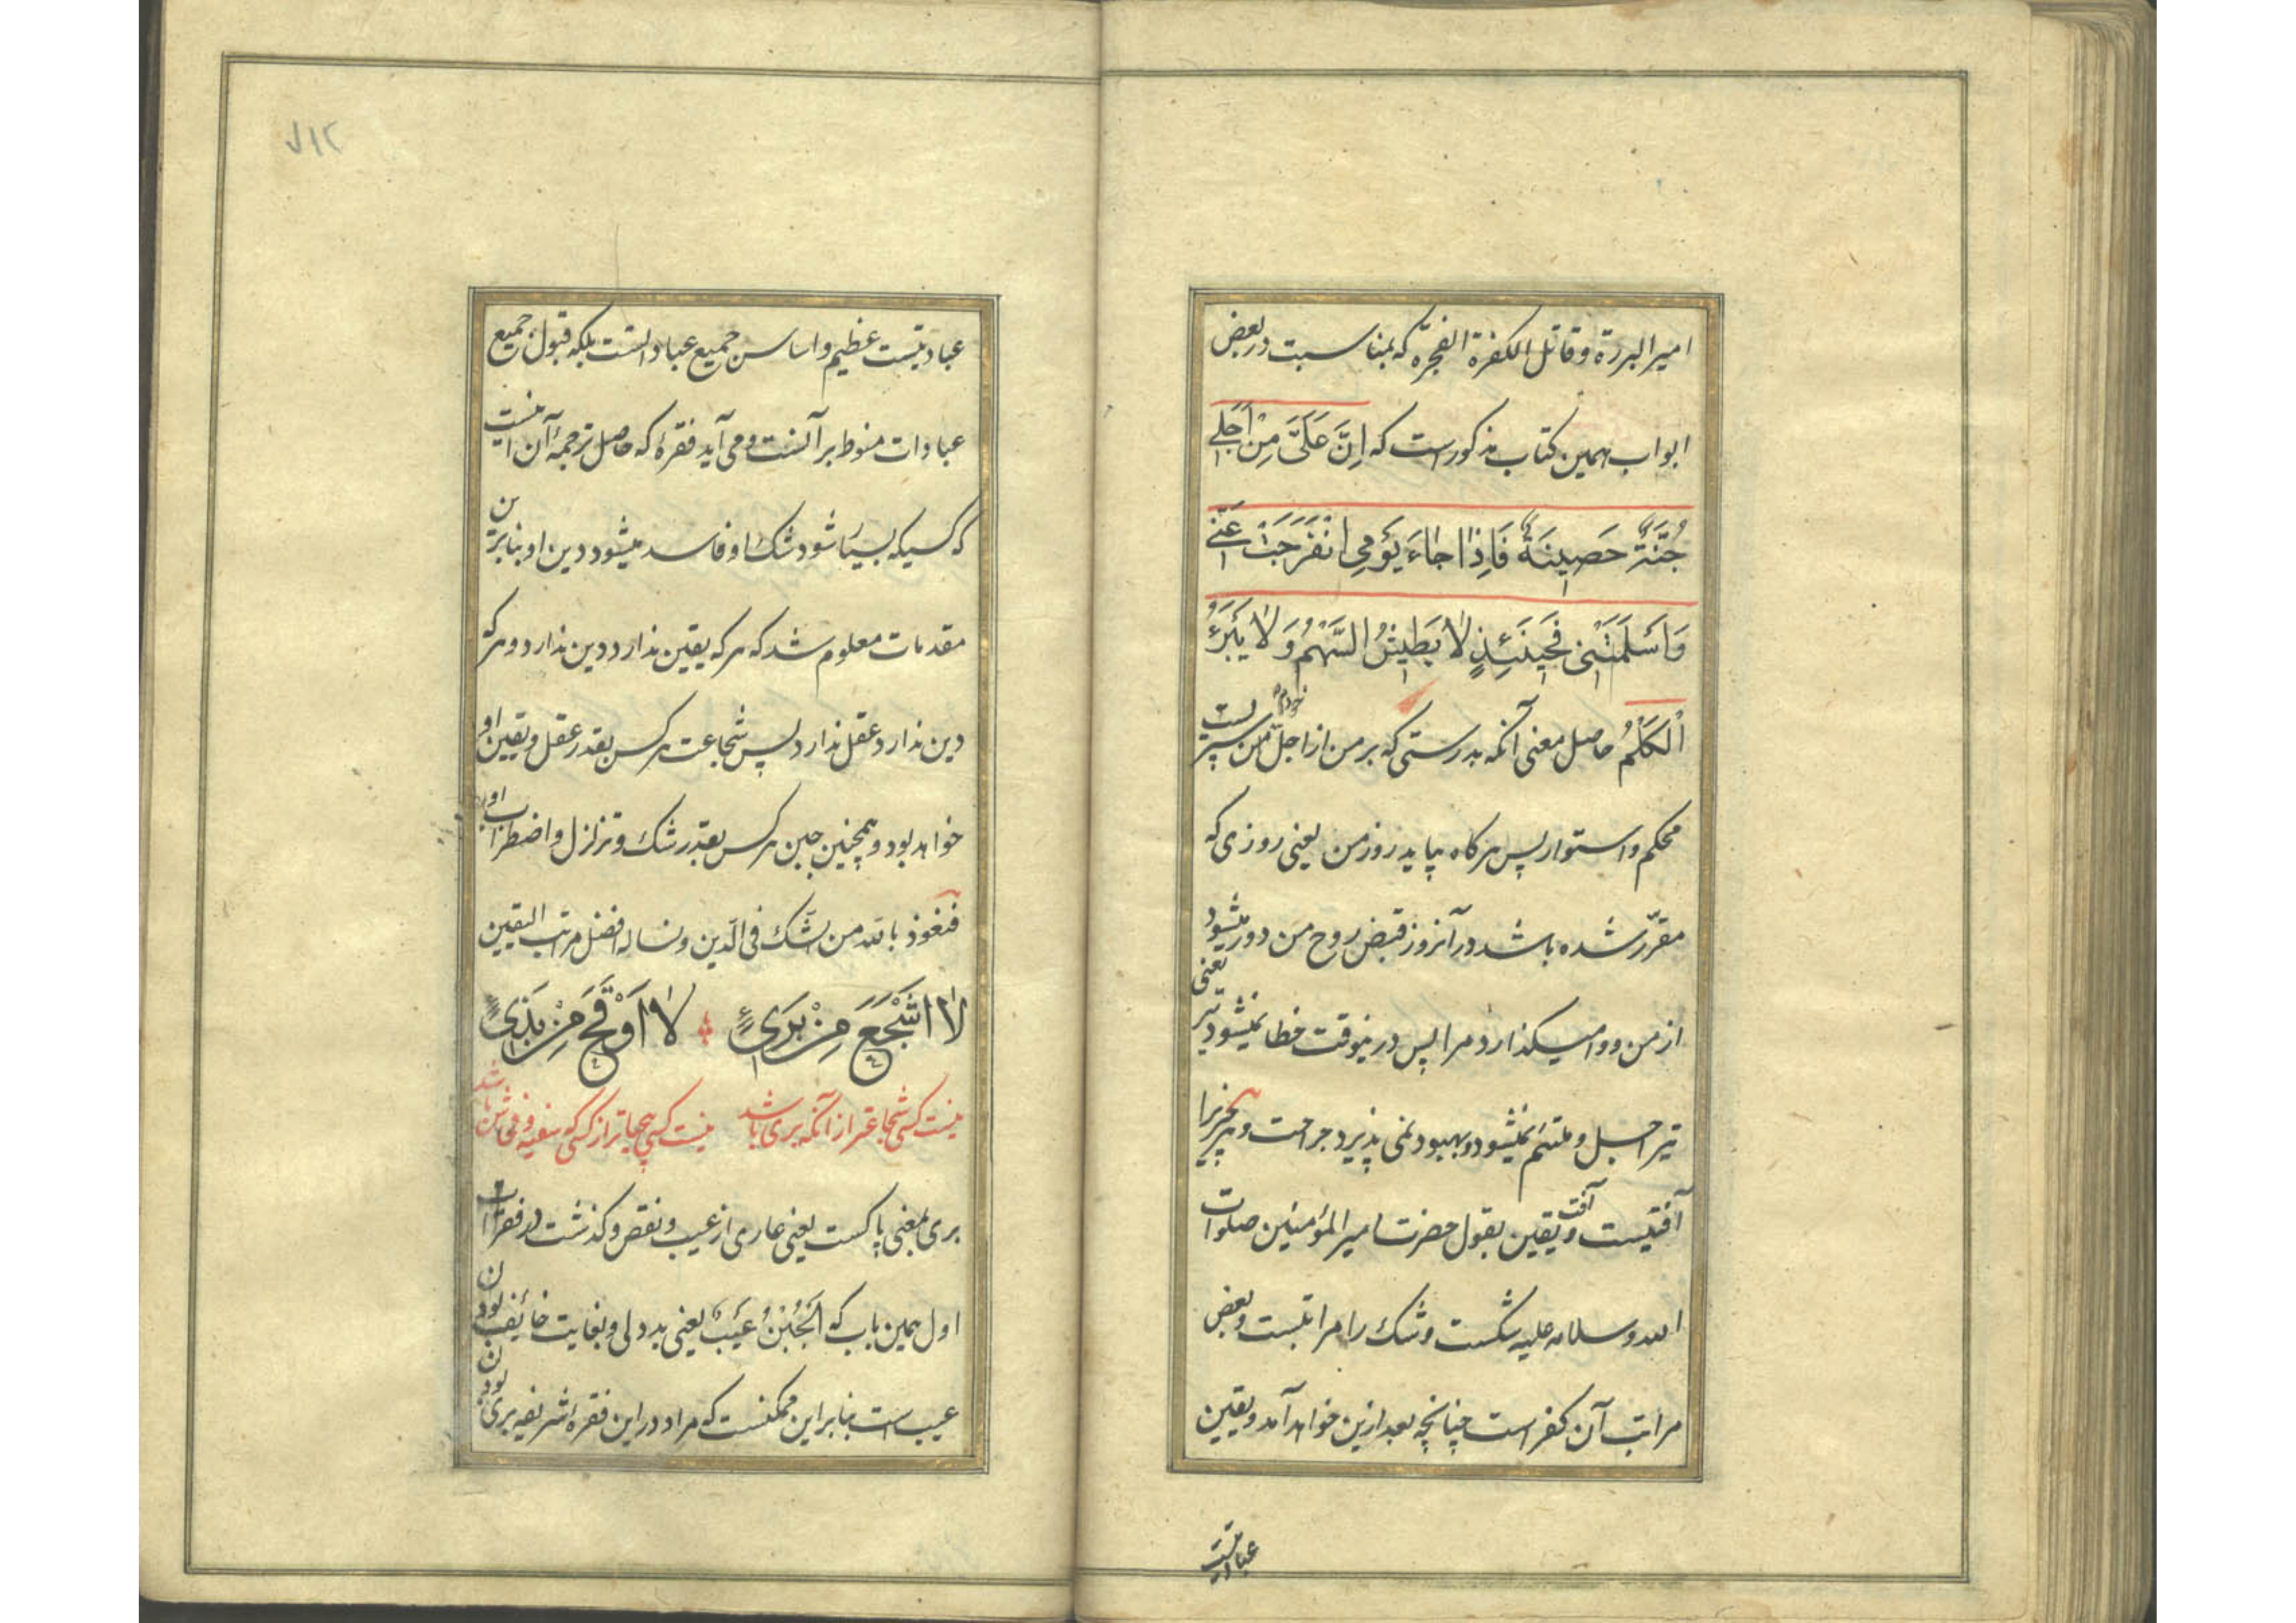 امیر البررة و قاتل الکفرة الفجرة که بمناسبت در بعض
ابواب همین کتاب مذکورست که اِنَّ عَلَیَّ مِنْ اَجَلی
جُنَّةٌ حَصینَةٌ فَاِذا جاءَ یَوْمِی انْفَرَجَتْ عَنّی
وَاَسْلَمَتْنی فَحینَئِذٍ لا یَطیشُ السَّهْمُ وَ لا یَبْرَءُ
الْکَلْمُ حاصل معنی آنکه بدرستی که بر من از اجل من سپریست
محکم و استوار پس هرکاه بیاید روز من یعنی روزی که
مقرّر شده باشد در آنروز قبض روح من دور میشود
از من و وامیکذارد مرا پس درینوقت خطا نمیشود تیر یعنی
تیر اجل و ملتئم نمیشود و بهبود نمی پذیرد جراحت و هر چیزیرا
آفتیست و آفت یقین بقول حضرت امیر المؤمنین صلوات
الله و سلامه علیه شکست و شک را مراتبست و بعض
مراتب آن کفر است چنانچه بعد ازین خواهد آمد و یقین
عبادتیست
۷۱۲
عبادتیست عظیم و اساس جمیع عباداتست بلکه قبول جمیع
عبادات منوط بر آنست و می آید فقرهٔ که حاصل ترجمهٔ آن اینست
که کسیکه بسیار شود شک او فاسد میشود دین او بنا برین
مقدمات معلوم شد که هر که یقین ندارد دین ندارد و هر که
دین ندارد عقل ندارد پس شجاعت هر کس بقدر عقل و یقین او
خواهد بود و همچنین جبن هر کس بقدر شک و تزلزل و اضطراب او
فنعوذ بالله من الشّک فی الدّین و نساله افضل مراتب الیقین
لا اَشْجَعَ مِنْ بَرِیءٍ لا اَوْقَحَ مِنْ بَذِیءٍ
نیست کسی شجاعتر از آنکه بری باشد نیست کسی بیحیاتر از کسی که سفیه و فحاش باشد
بری بمعنی پاکست یعنی عاری از عیب و نقص و کذشت در فقرات
اول همین باب که اَلْجُبْنُ عَیْبٌ یعنی بددلی و بغایت خائف بودن
عیب است بنابراین ممکنست که مراد در این فقرهٔ شریفه بری بودن